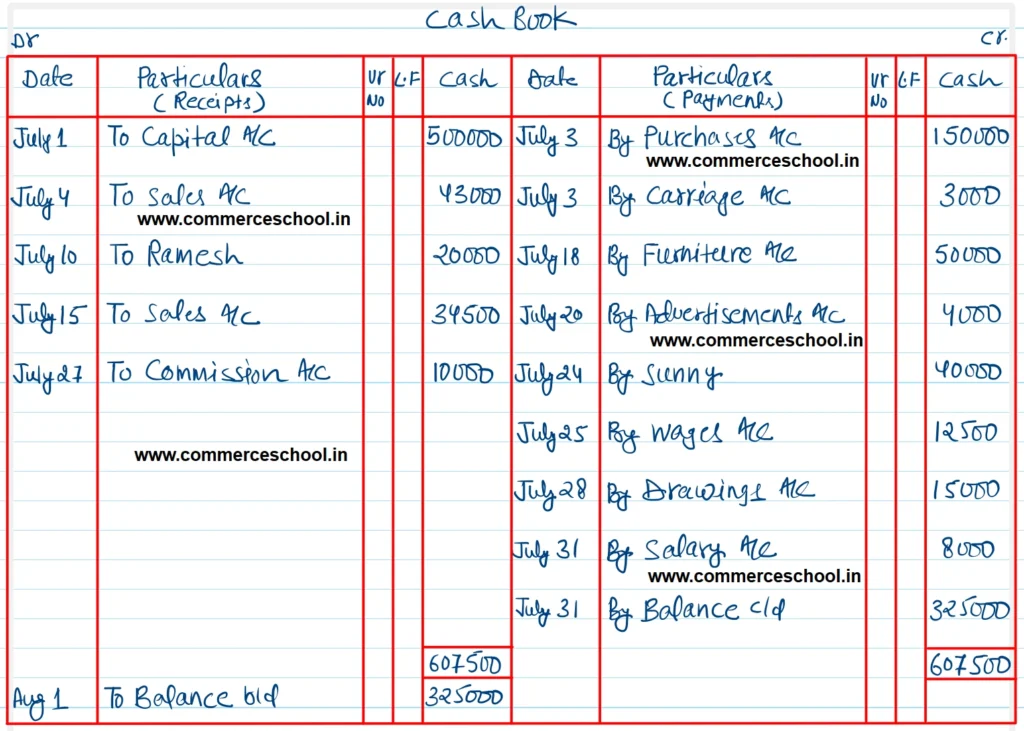 Cash Book
Dr Cr.
Date Particulars (Receipts) Vr No L.F Cash Date Particulars (Payments) Vr No L.F Cash
July 1 To Capital A/C 500000 July 3 By Purchases A/C 150000
www.commerceschool.in
July 4 To Sales A/C 43000 July 3 By Carriage A/C 3000
www.commerceschool.in
July 10 To Ramesh 20000 July 18 By Furniture A/C 50000
July 15 To Sales A/C 34500 July 20 By Advertisements A/C 4000
www.commerceschool.in
July 27 To Commission A/C 10000 July 24 By Sunny 40000
July 25 By Wages A/C 12500
www.commerceschool.in
July 28 By Drawings A/C 15000
July 31 By Salary A/C 8000
www.commerceschool.in
July 31 By Balance c/d 325000
607500 607500
Aug 1 To Balance b/d 325000